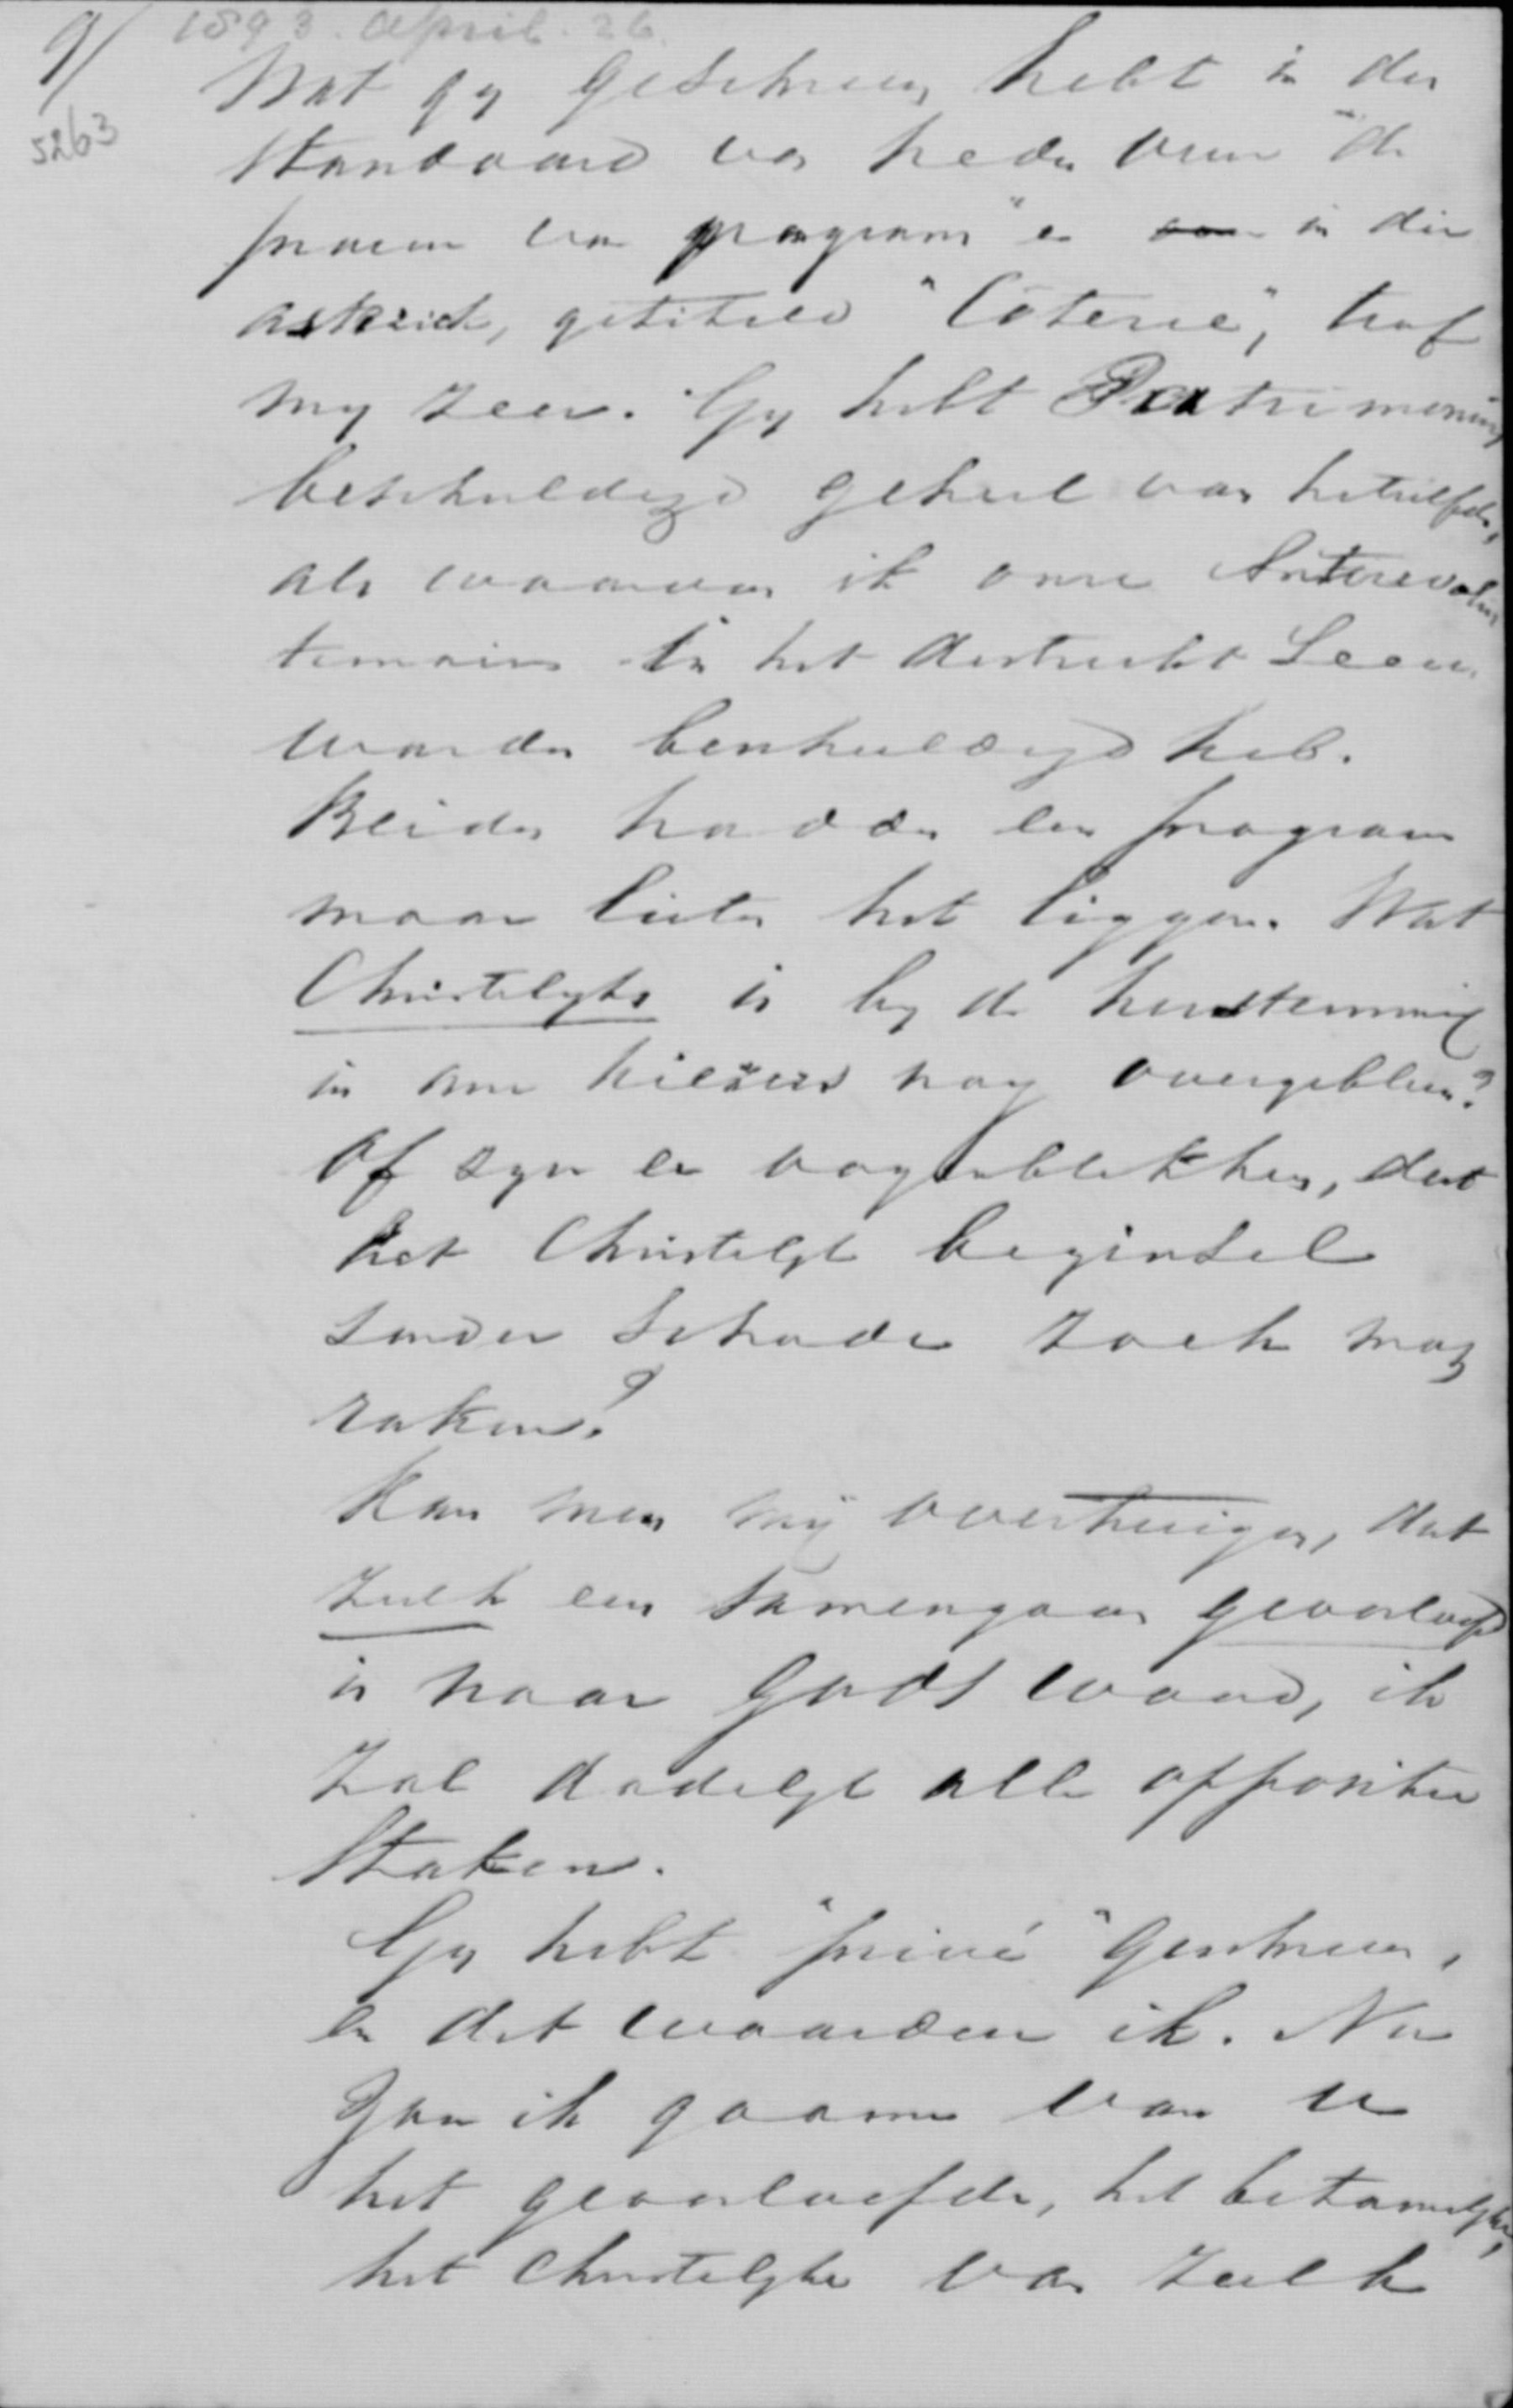 9/ 1893. April. 26.
5263
Wat gy geschreven hebt in den
Standaard van heden over "de
frasen van program" en in die
asterisk, getiteld "Coterie", trof
my zeer. Gy hebt Patrimonium
beschuldigd geheel van hetzelfde,
als waarvan ik onze Antirevolu
tionairen in het district Leeu
warden beschuldigd heb.
Beiden hadden een program
maar lieten het liggen. Wat
Christelyks is by de herstemming
in ons nog overgebleven?
Of zyn er oogenblikken, dat
het Christelyk beginsel
zonder schade zoek mag
raken?
Kan men mij overtuigen, dat
zulk een samengaan geoorloofd
is naar Gods woord, ik
zal dadelyk alle oppositie
staken.
Gy hebt "privé" geschreven,
en dat waardeer ik. Nu
gaarne van u
het geoorloofde, het betamelyke,
het Christelyke van zulk